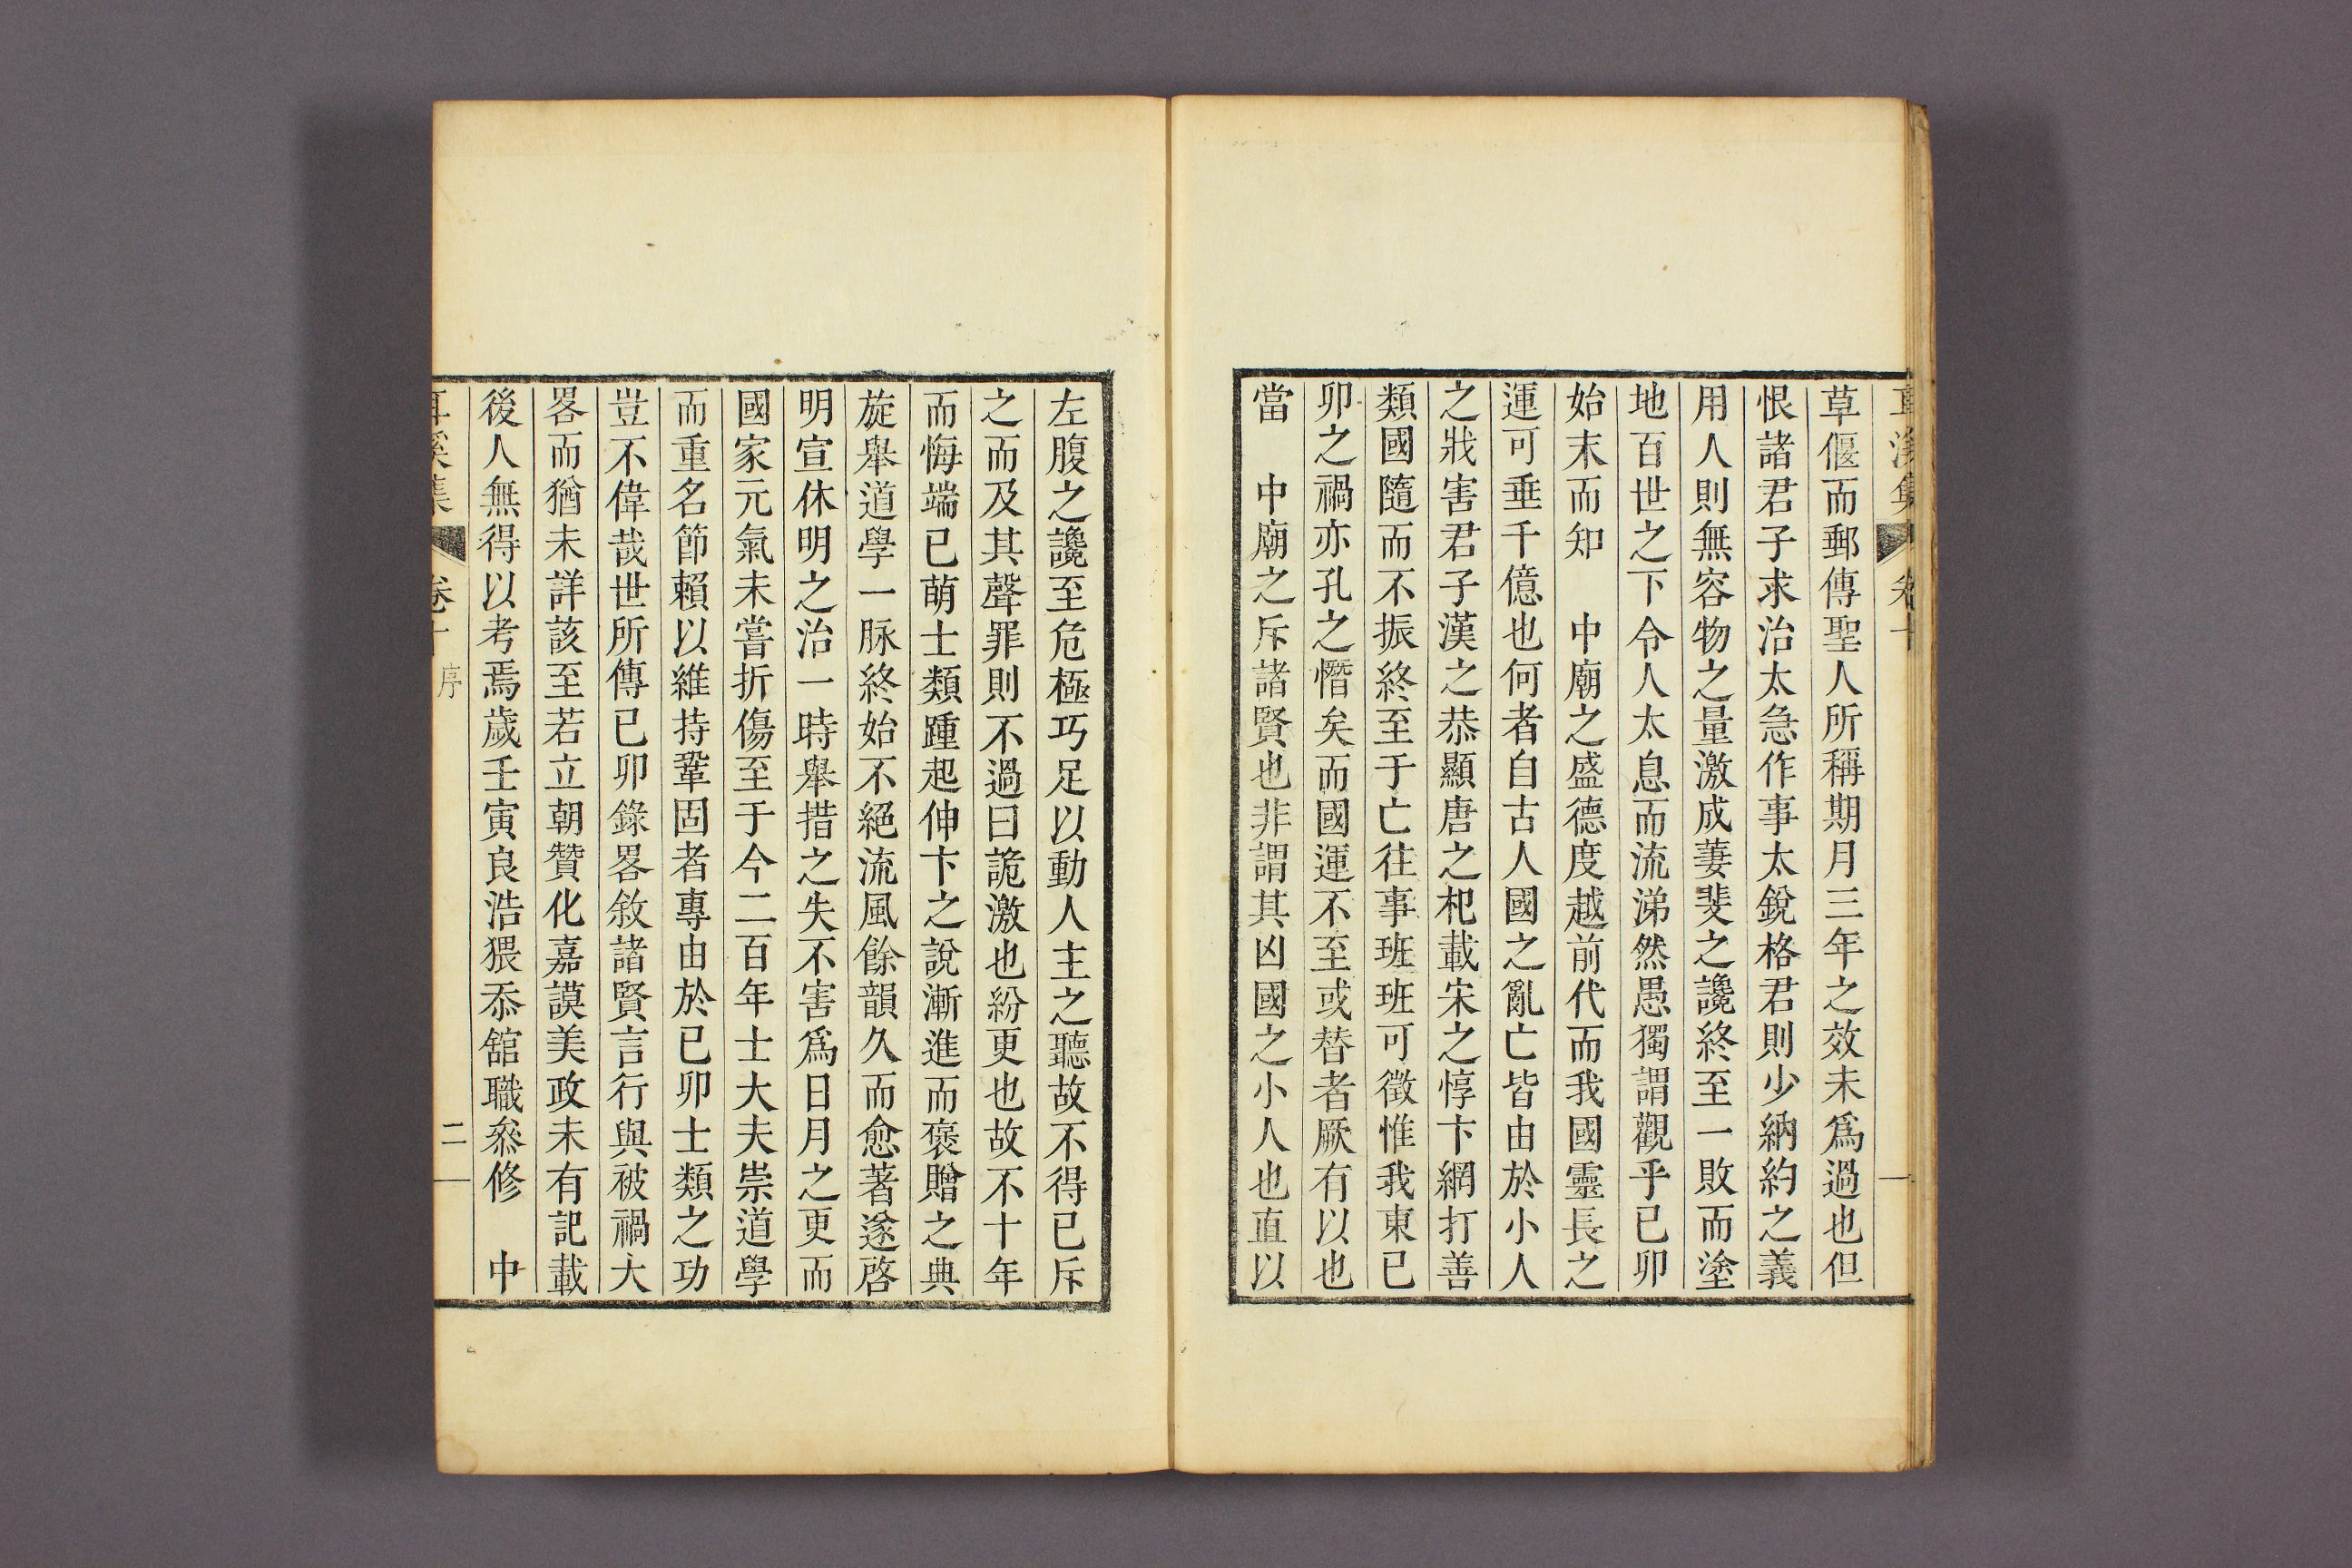 耳溪集 卷十 一
草偃而郵傳聖人所稱期月三年之效未爲過也但
恨諸君子求治太急作事太銳格君則少納約之義
用人則無容物之量激成萋斐之讒終至一敗而塗
地百世之下令人太息而流涕然愚獨謂觀乎已卯
始末而知　中廟之盛德度越前代而我國靈長之
運可垂千億也何者自古人國之亂亡皆由於小人
之戕害君子漢之恭顯唐之杞載宋之惇卞網打善
類國隨而不振終至于亡往事班班可徵惟我東已
卯之禍亦孔之憯矣而國運不至或替者厥有以也
當　中廟之斥諸賢也非謂其凶國之小人也直以
左腹之讒至危極巧足以動人主之聽故不得已斥
之而及其聲罪則不過曰詭激也紛更也故不十年
而悔端已萌士類踵起伸卞之說漸進而褒贈之典
旋舉道學一脉終始不絕流風餘韻久而愈著遂啓
明宣休明之治一時舉措之失不害爲日月之更而
國家元氣未嘗折傷至于今二百年士大夫崇道學
而重名節賴以維持鞏固者專由於已卯士類之功
豈不偉哉世所傳已卯錄畧敘諸賢言行與被禍大
畧而猶未詳該至若立朝贊化嘉謨美政未有記載
後人無得以考焉歲壬寅良浩猥忝舘職叅修　中
耳溪集 卷十 序 二